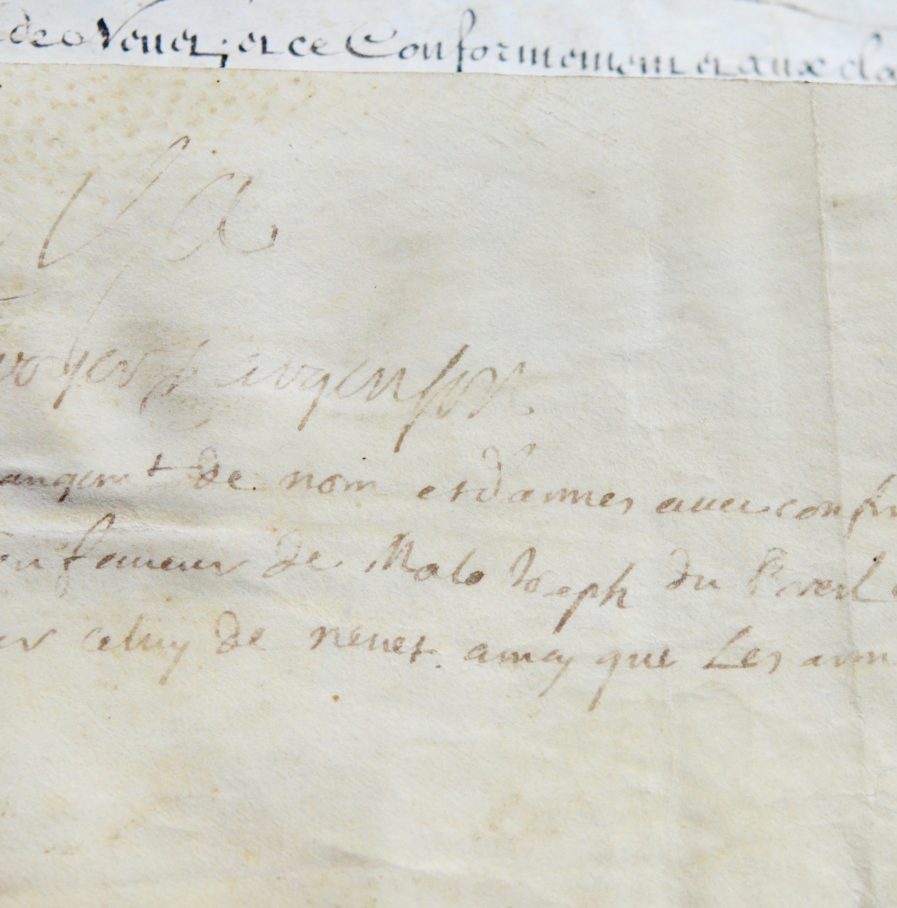 de Nevet; et ce Conformement aux cla
Visa
voyer d'argenson
angemt de nom et d'armes avec confir
en faveur de Malo Joseph du
celuy de nevet. ainsy que Les arm